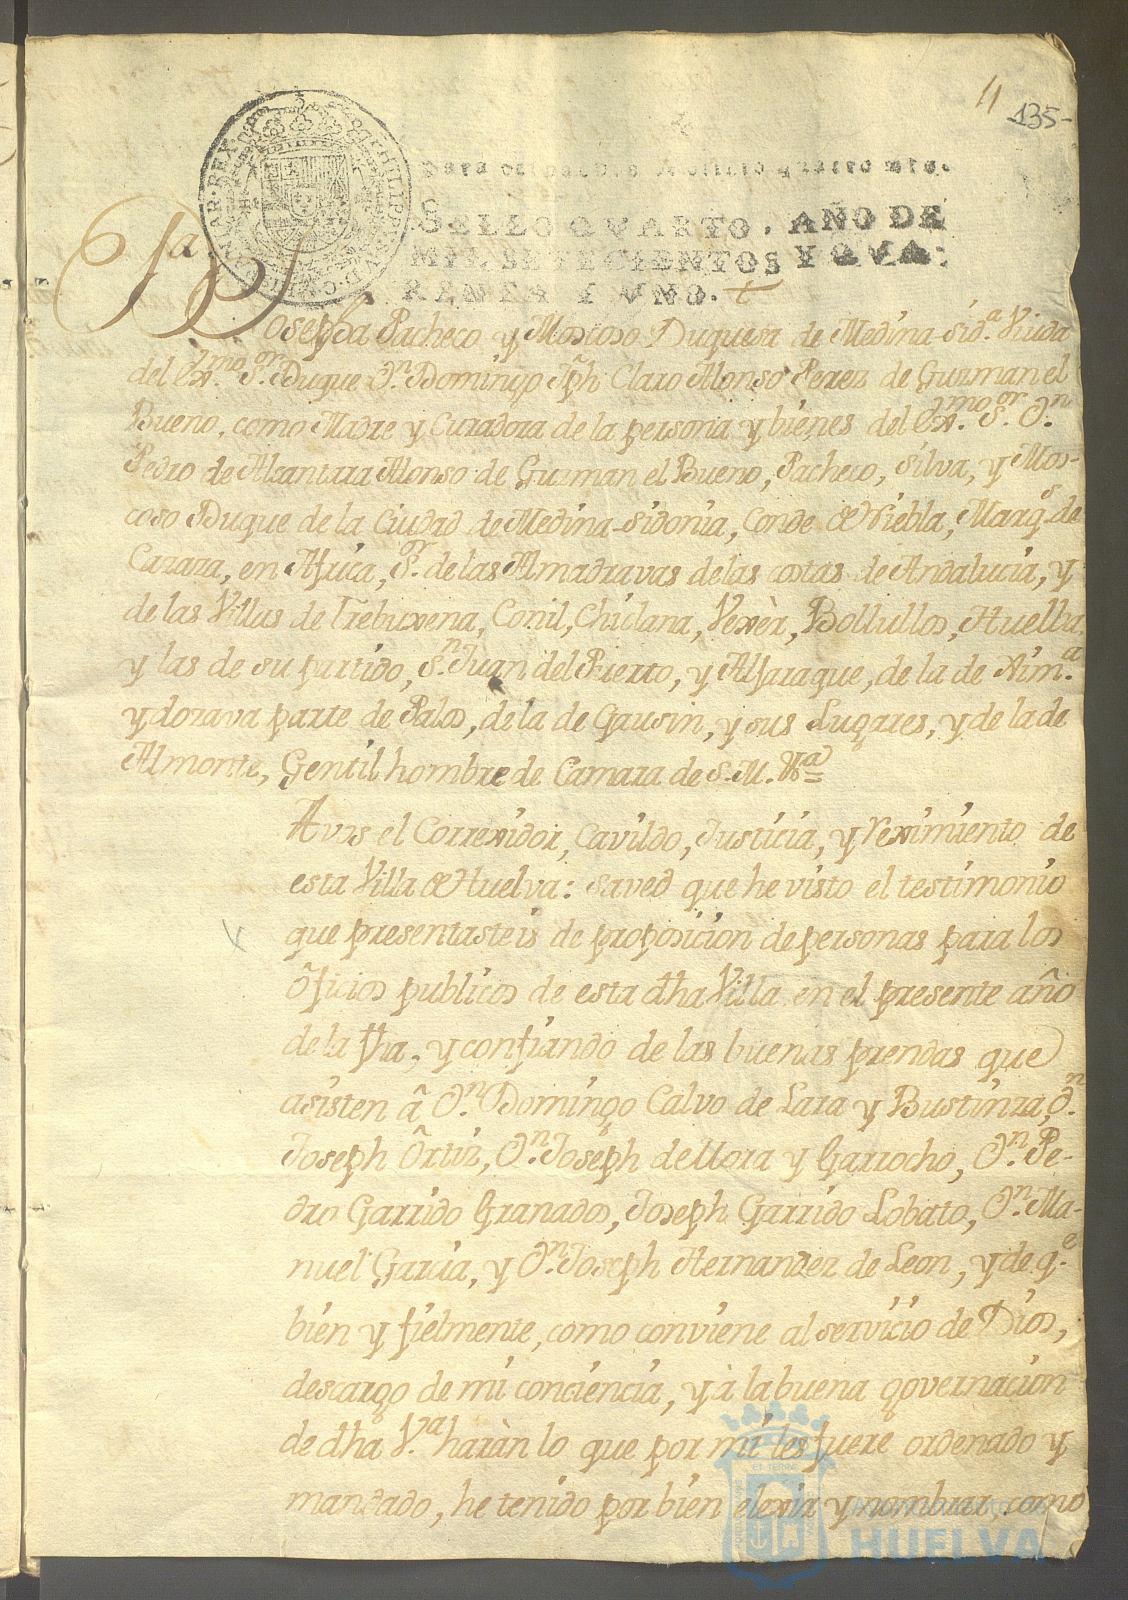 11
135-
para despachos de oficio quatro mrs.
SELLO QVARTO, AÑO DE
MIL SETECIENTOS Y QVA-
RENTA Y VNO.
Josepha Pacheco y Moscoso Duquesa de Medina Sid.ª Viuda
del Ex.mo S.or Duque D.n Domingo Jph Claro Alonso Perez de Guzman el
Bueno, como Madre y Curadora de la persona y bienes del Ex.mo S.or D.n
Pedro de Alcantara Alonso de Guzman el Bueno, Pacheco, Silva, y Mos-
coso Duque de la Ciudad de Medina-Sidonia, Conde de Niebla, Marq.s de
Cazaza, en Africa, S.or de las Almadravas de las costas de Andalucia, y
de las Villas de Trebuxena, Conil, Chiclana, Vexèr, Bollullos, Huelba,
y las de su partido, S.n Juan del Puerto, y Aljaraque, de la de Aim.ª
y dozava parte de Palos, de la de Gausin, y sus Lugares, y de la de
Almonte, Gentilhombre de Camara de S. M. &ª=
A vos el Correxidor, Cavildo, Justicia, y reximiento de
esta Villa de Huelva: saved que he visto el testimonio
que presentasteis de proposicion de personas para los
òficios publicos de esta dha Villa en el presente año
de la fha, y confiando de las buenas prendas que
asisten â D.n Domingo Calvo de Lara y Bustinza, D.n
Joseph Ôrtiz, D.n Joseph de Mora y Garrocho, D.n Pe-
dro Garrido Granados, Joseph Garrido Lobato, D.n Ma-
nuel Garcia, y D.n Joseph Hernandez de Leon, y de q.e
bien y fielmente, como conviene al servicio de Dios,
descargo de mi conciencia, y à la buena governacion
de dha V.ª haràn lo que por mi les fuere ordenado y
mandado, he tenido por bien elexir y nombrar, como
HUELVA